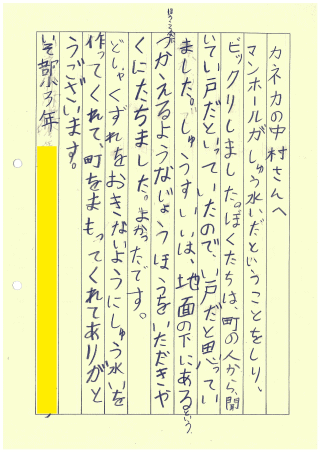 カネカの中村さんへ
マンホールがしゅう水いだということをしり、
ビックリしました。ぼくたちは、町の人から、聞
いてい戸だといっていたので、い戸だと思ってい
ました。しゅうすいいは、地面の下にあるという
つかえるようなじょうほうをいただきや
くにたちました。よかったです。
どしゃくずれをおきないようにしゅう水いを
作ってくれて、町をまもってくれてありがと
うございます。
いそ部小3年